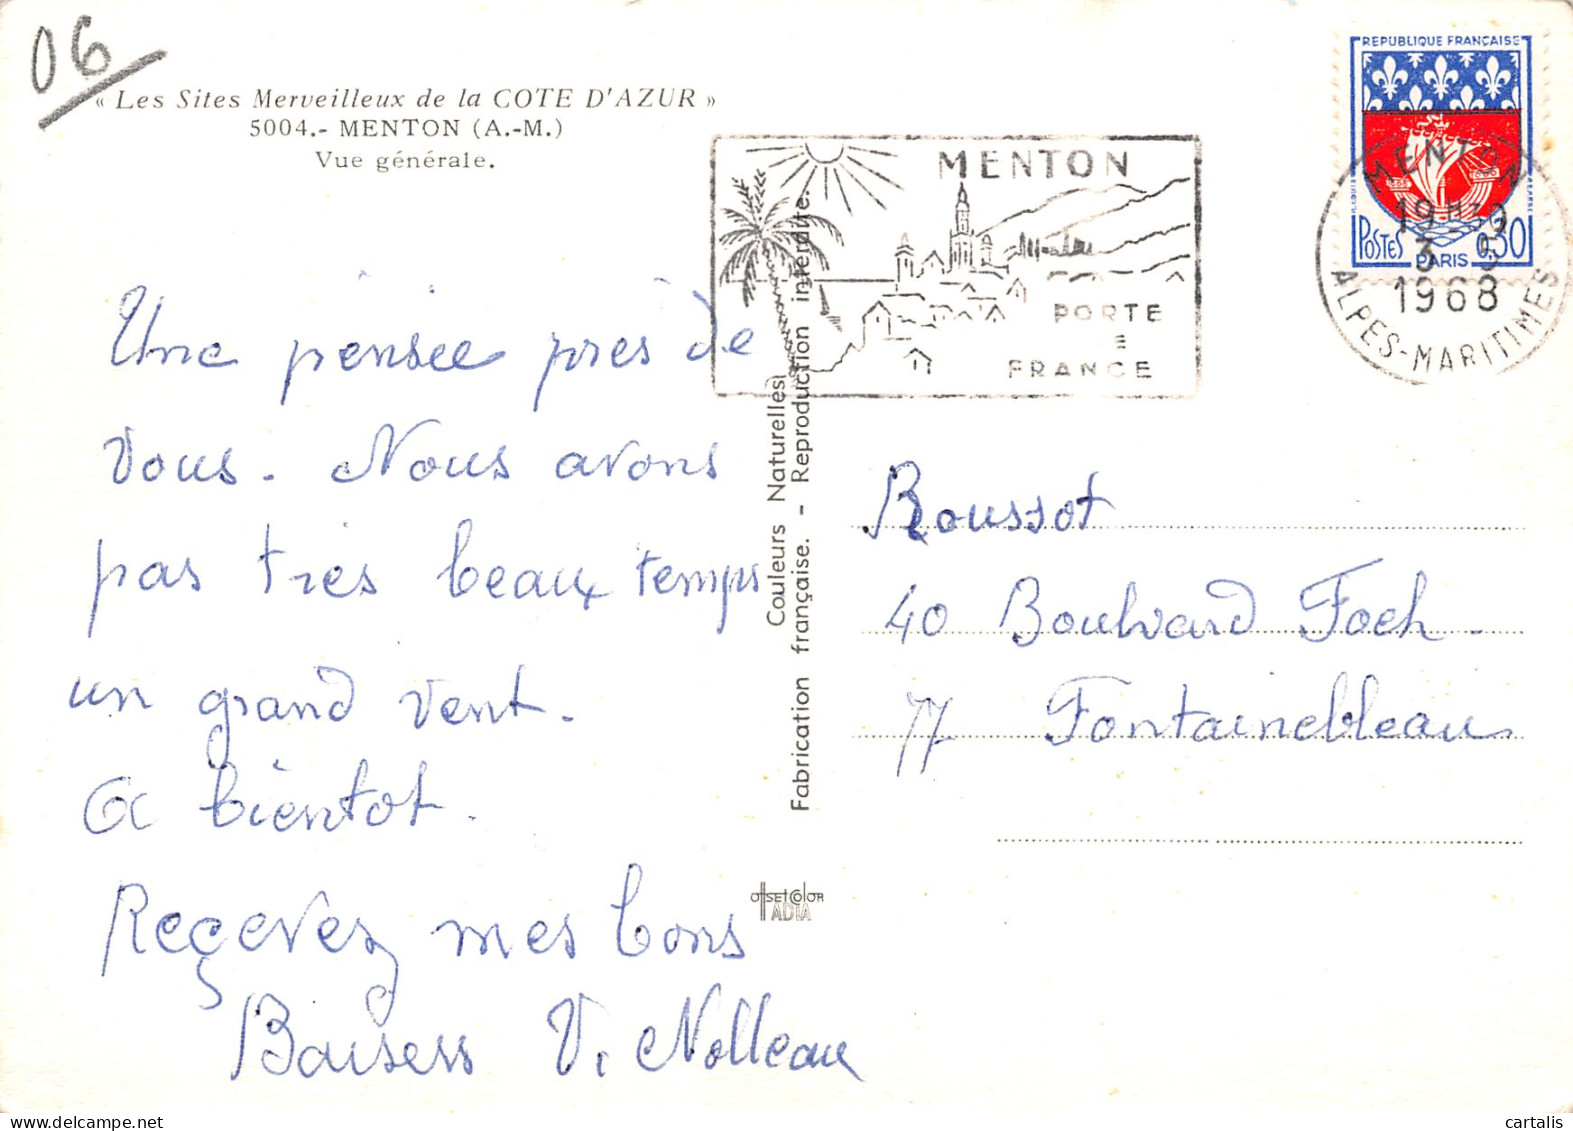 06
« Les Sites Merveilleux de la COTE D'AZUR »
5004.- MENTON (A.-M.)
Vue générale.
Une pensée près de
vous. Nous avons
pas très beau temps
un grand vent.
A bientot.
Reçevez mes bons
Baisers V. Nolleau
Couleurs Naturelles
Fabrication française. - Reproduction interdite.
OFFSETCOLOR
ADIA
MENTON
PORTE
FRANCE
REPUBLIQUE FRANÇAISE
POSTES
PARIS
0,30
MENTON
1968
ALPES-MARITIMES
Roussot
40 Boulvard Foch -
77 Fontainebleau
cartalis